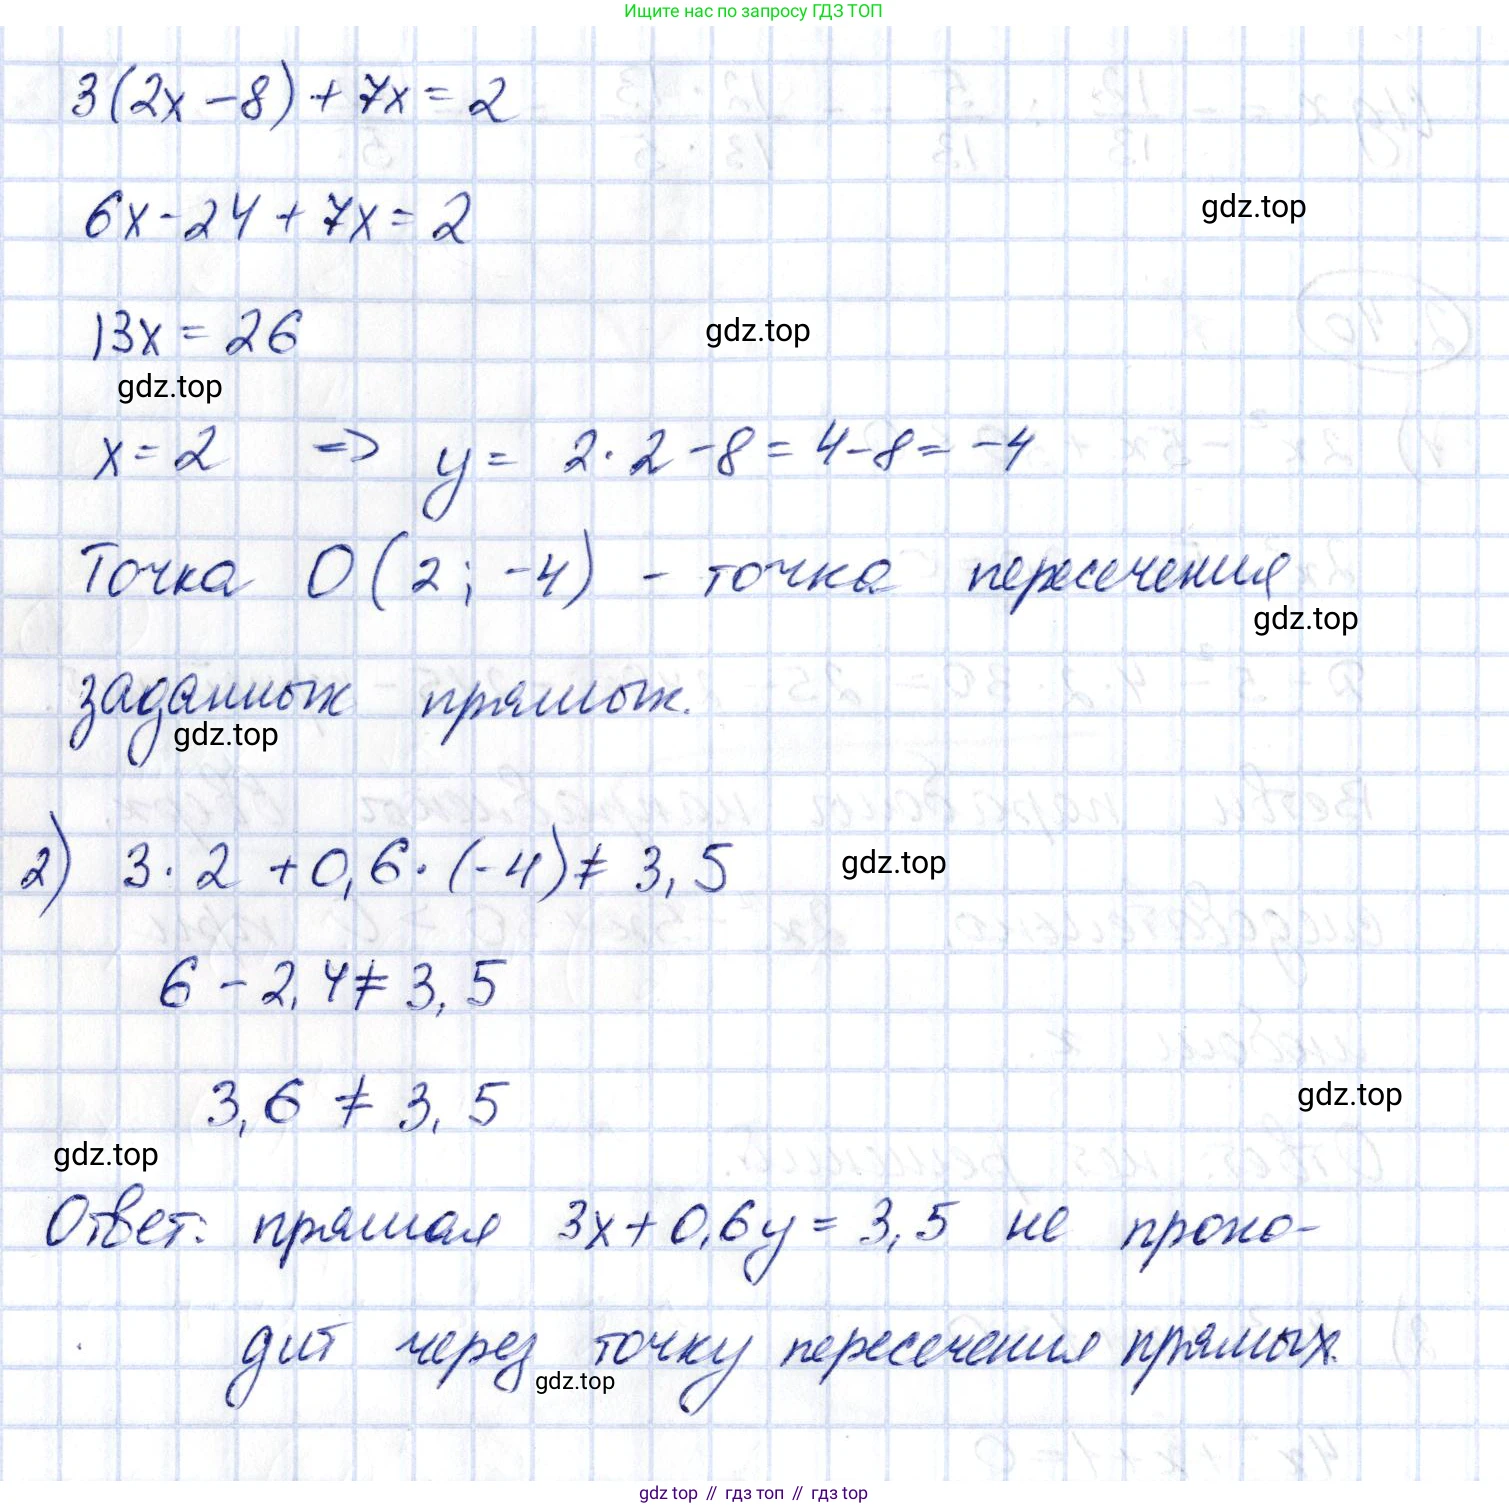 Ищите нас по запросу ГДЗ ТОП
3(2x - 8) + 7x = 2
6x - 24 + 7x = 2
gdz.top
13x = 26
gdz.top
gdz.top
x = 2 => y = 2 · 2 - 8 = 4 - 8 = -4
Точка O (2; -4) - точка пересечения
gdz.top
заданных прямых.
gdz.top
2) 3 · 2 + 0,6 · (-4) ≠ 3,5
gdz.top
6 - 2,4 ≠ 3,5
3,6 ≠ 3,5
gdz.top
gdz.top
Ответ: прямая 3x + 0,6y = 3,5 не прохо-
дит через точку пересечения прямых.
gdz.top
gdz top // гдз топ // гдз top